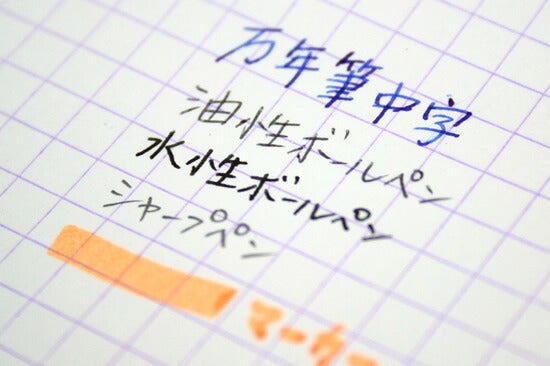 万年筆中字
油性ボールペン
水性ボールペン
シャープペン
マーカー